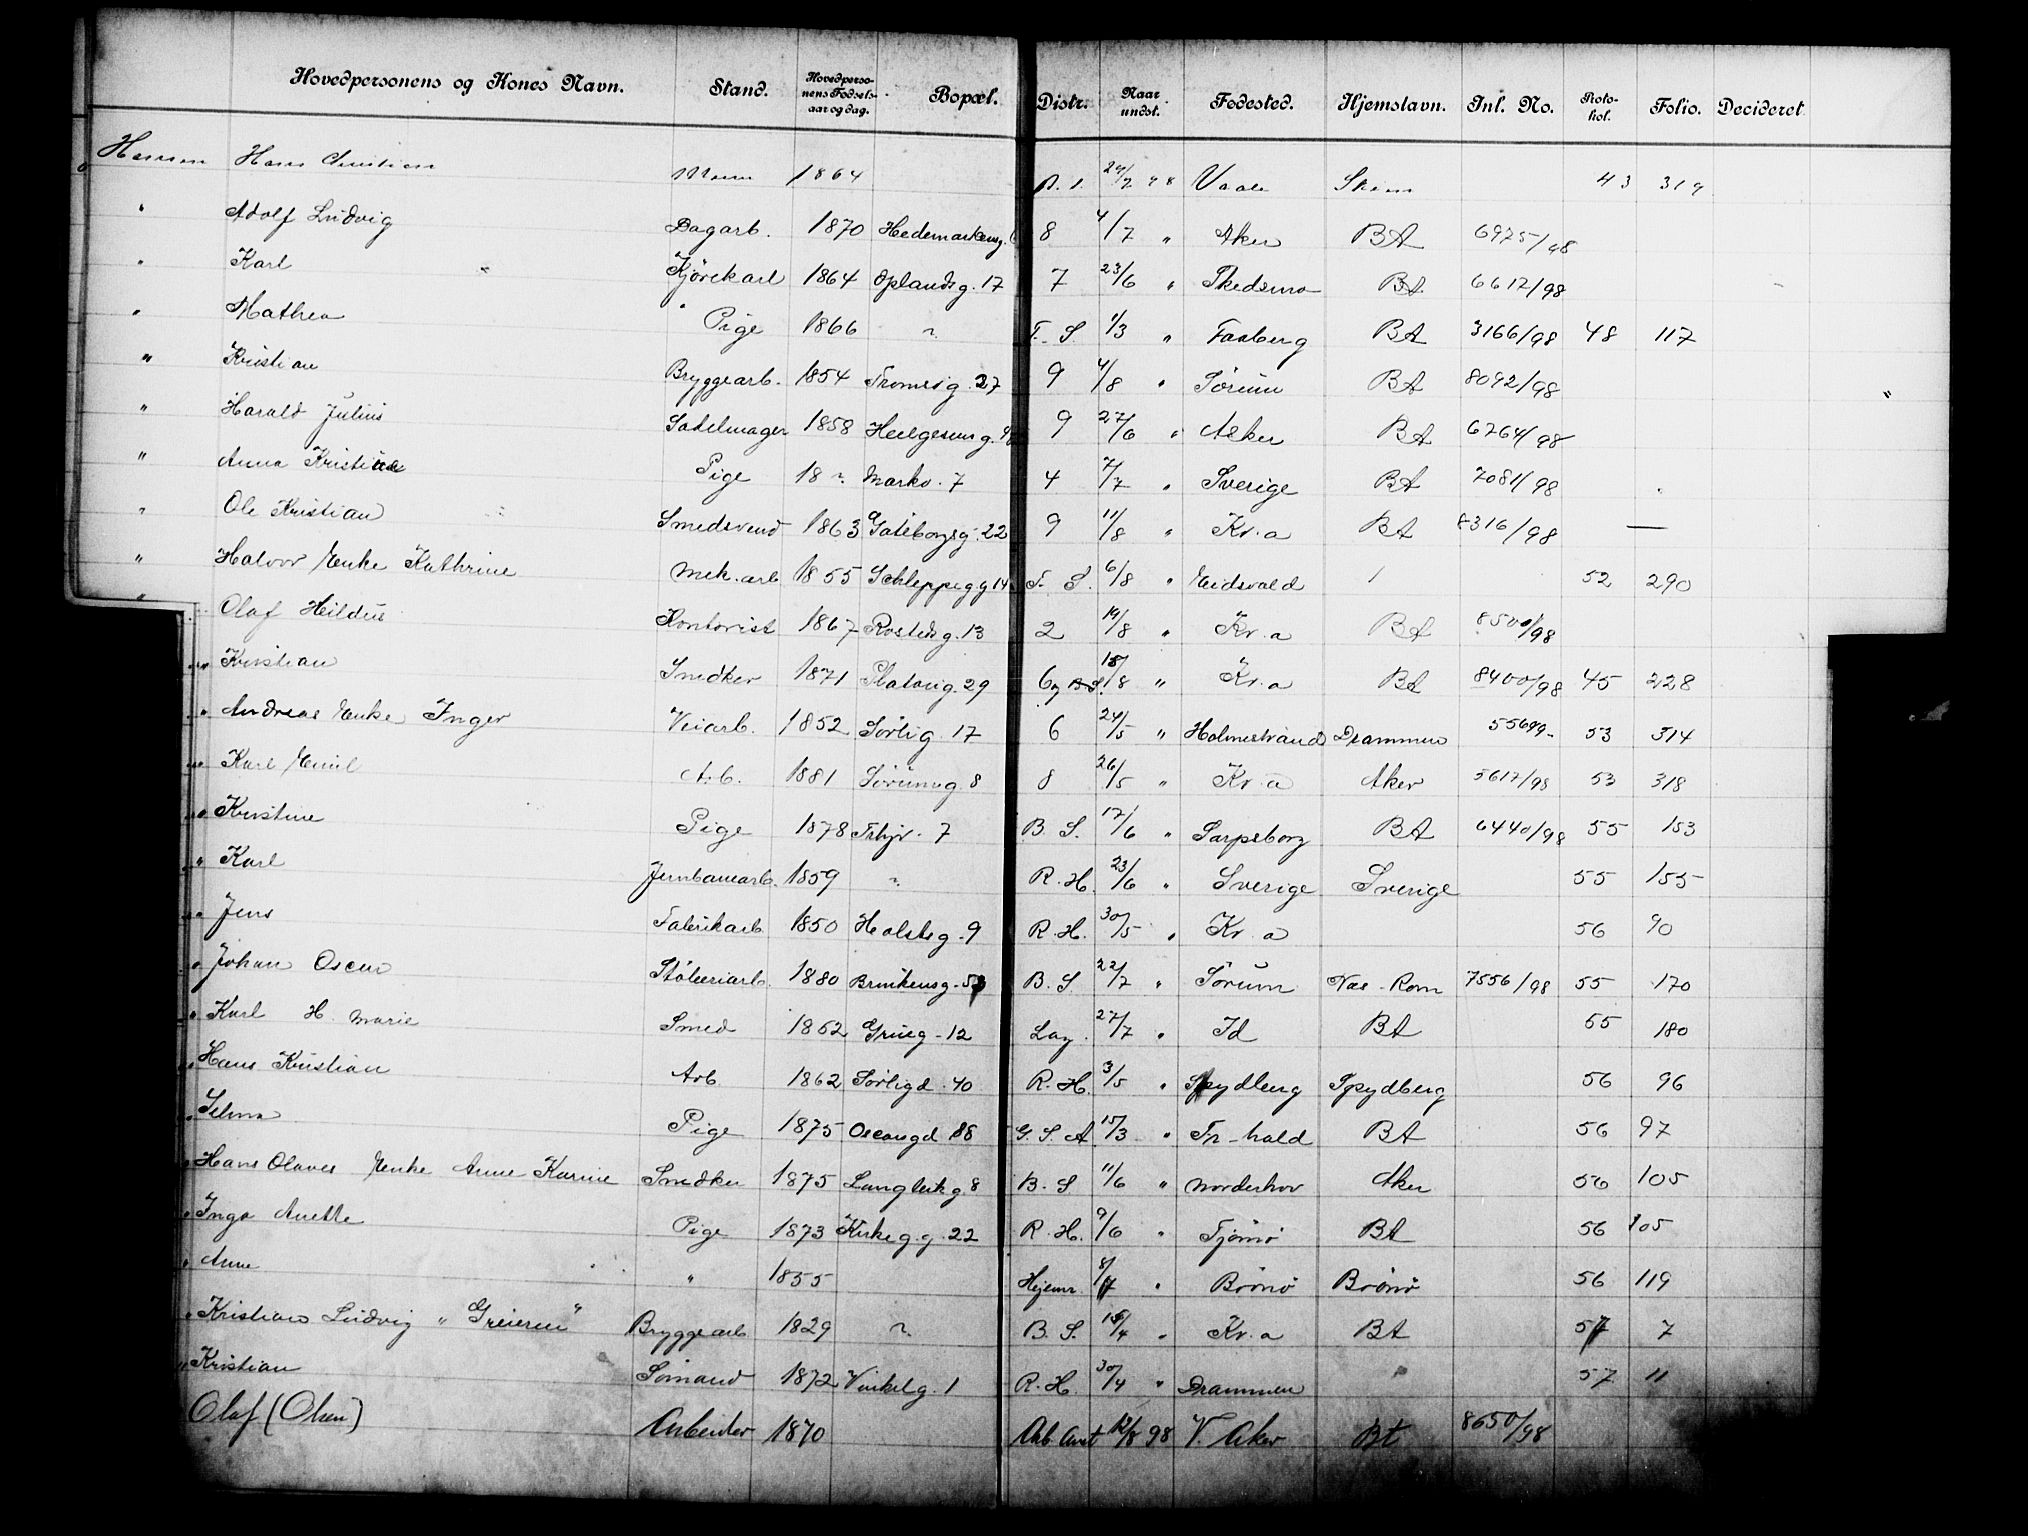 Hovedpersonens og Kones Navn. Stand. Hovedperso-nens Fødsels-aar og dag. Bopæl. Distr. Naar undst. Fødested. Hjemstavn. Inl. No. Proto-kol. Folio. Decideret
Hansen Hans Christian Mann 1864 R. S. 98 Vaale 43 319
" Adolf Ludvig Dagarb. 1870 Hedemarkensg. 8 4/7 " Aker BA 6975/98
" Karl Kjørekarl 1864 Oplandsg. 17 7 23/6 " Skedsmo BA 6617/98
" Mathea Pige 1866 " T. S 1/3 " Faaberg BA 3166/98 48 117
" Kristian Bryggearb. 1854 Tromsøg. 27 9 4/8 " Sørum BA 8092/98
" Harald Julius Sadelmager 1858 Helgesensg. 9 27/6 " Asker BA 6764/98
" Anna Kristine Pige 18 " Markv. 7 4 7/7 " Sverige BA 7081/98
" Ole Kristian Smedsvend 1863 Gøteborgg. 22 9 11/8 " Kr.a BA 8316/98 —
" Halvor Enke Kathrine Mek. arb 1855 Schleppeg g 14 T. S. 6/8 " Eidsvold / 52 290
" Olaf Hildus Kontorist 1867 Rostedsg. 13 2 19/8 " Kr.a BA 8500/98
" Kristian Snedker 1871 Platoug. 29 6 B.S. 18/8 " Kr.a BA 8400/98 45 228
" Andreas Enke Inger Veiarb. 1852 Sørlig. 17 6 24/5 " Holmestrand Drammen 53 314
" Karl Emil Arb. 1881 Sørumg 8 8 26/5 " Kr.a Aker 5617/98 53 318
" Kristine Pige 1878 7 B. S. 17/6 " Sarpsborg BA 6440/98 55 153
" Karl Jernbanearb. 1859 " R. H. 23/6 " Sverige Sverige 55 155
" Jens Fabrikarb 1850 Holstsg. 9 R. H. 30/5 " Kr.a 56 90
" Johan Oscar Støberiarb. 1880 Brinkensg. B. S. 22/7 " Sørum Næs - Rom 7556/98 55 170
" Karl H. Marie Smed 1862 Grüng - 12 Lag. 27/7 " Id BA 55 180
" Hans Kristian Arb 1862 Sørligd. 40 R. H. 3/5 " Spydberg Spydberg 56 96
" Selma Pige 1875 Oscarsgd 88 G. S. A 15/3 " Fr-hald BA 56 97
" Hans Olaves Enke Anne Karine Snedker 1875 Langleikg 8 B. S 11/6 " Norderhov Aker 56 105
" Inga Anette Pige 1873 Kirkeg. g. 22 R. H. 9/6 " Tjømø BA 56 105
" Anne " 1855 Hejem " Brønø Brønø 56 119
" Kristian Ludvig " Greieren " Bryggearb 1829 " B. S. " Kr.a BA 57 7
" Kristian Sømand 1872 Vinkelg. 1 R. H. 30/4 " Drammen " 57 11
Olaf (Olsen) Arbeider 1870 Arb. Anst 12/8 98 V. Aker Bt 8650/98